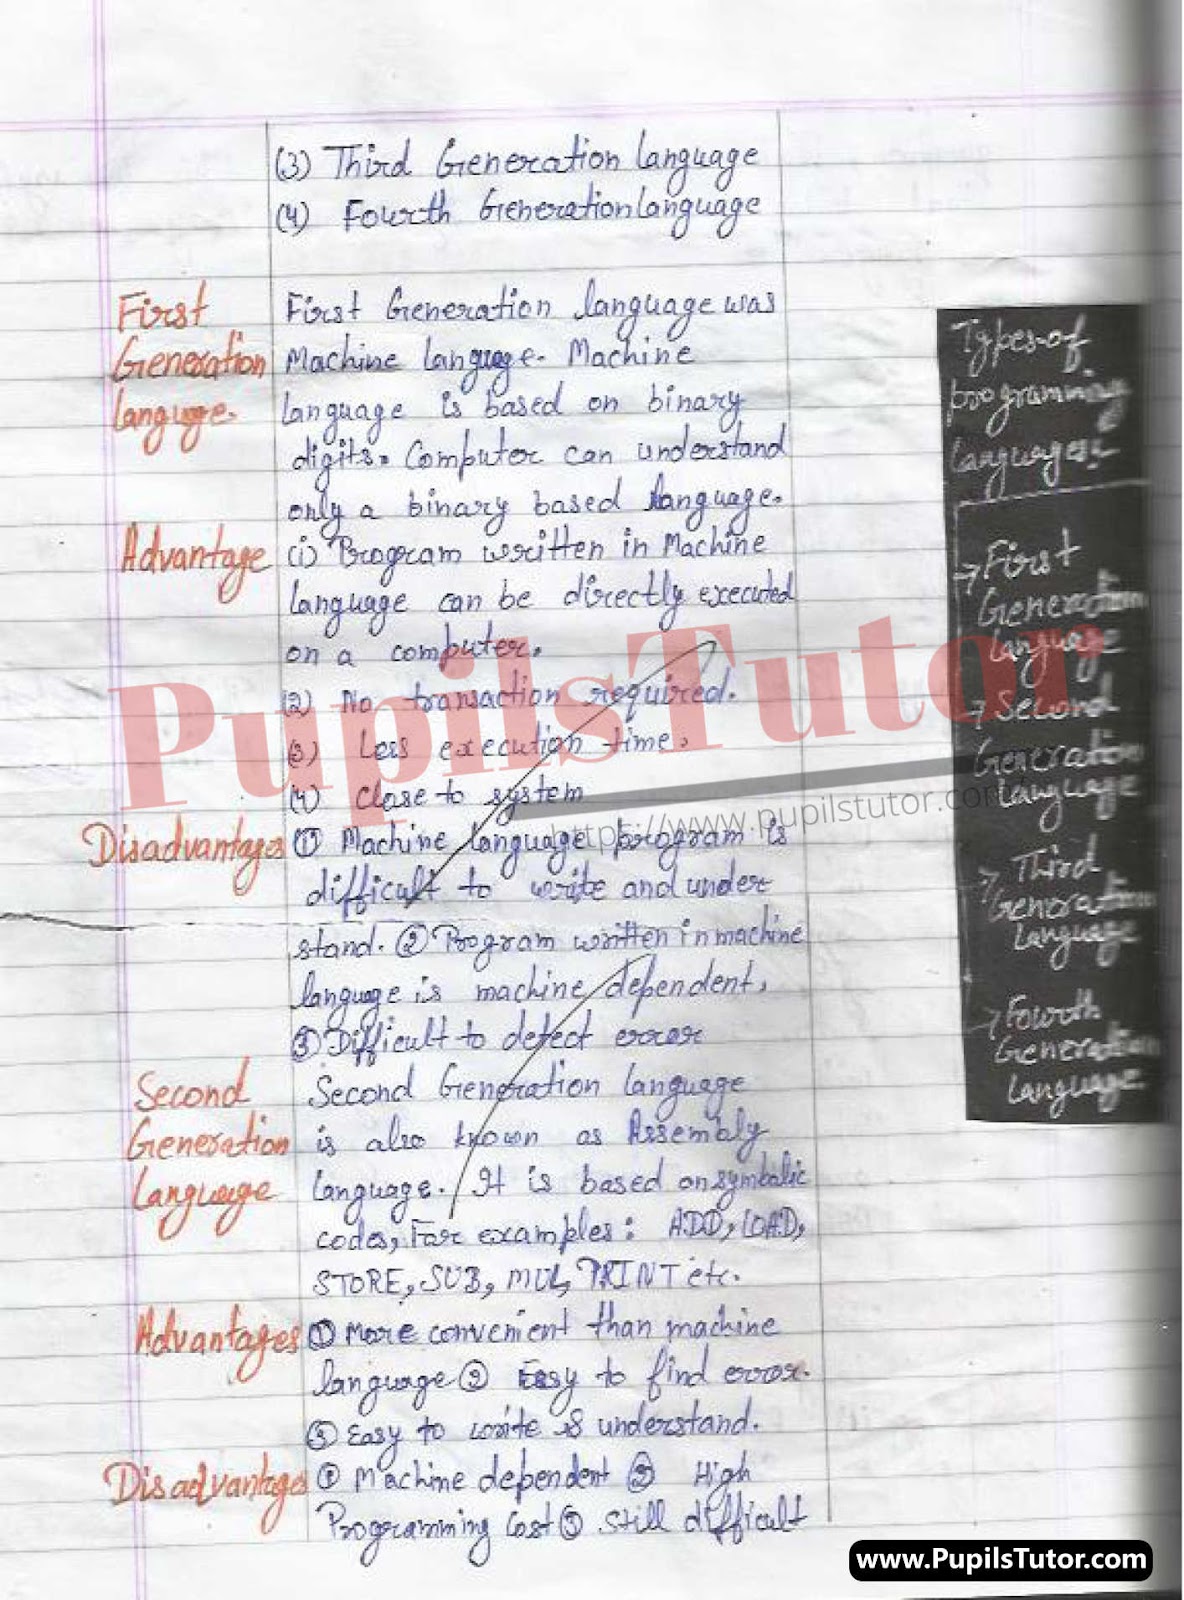 (3) Third Generation language
(4) Fourth Generation language
First
Generation
language.
First Generation language was
Machine language. Machine
language is based on binary
digits. Computer can understand
only a binary based language.
Advantage
(i) Program written in Machine
language can be directly executed
on a computer.
(2) No transaction required.
(3) Less execution time.
(4) Close to system
Disadvantages
① Machine language program is
difficult to write and under
stand. ② Program written in machine
language is machine dependent.
③ Difficult to detect error
Second
Generation
Language
Second Generation language
is also known as Assembly
language. It is based on symbolic
codes, For examples: ADD, LOAD,
STORE, SUB, MUL, PRINT etc.
Advantages
① More convenient than machine
language ② Easy to find error.
③ Easy to write & understand.
Disadvantage
① Machine dependent ② High
Programming Cost ③ Still difficult
Types of
programming
languages:-
→ First
Generation
language
→ Second
Generation
language
→ Third
Generation
language
→ Fourth
Generation
language
PupilsTutor
https://www.pupilstutor.com
www.PupilsTutor.com